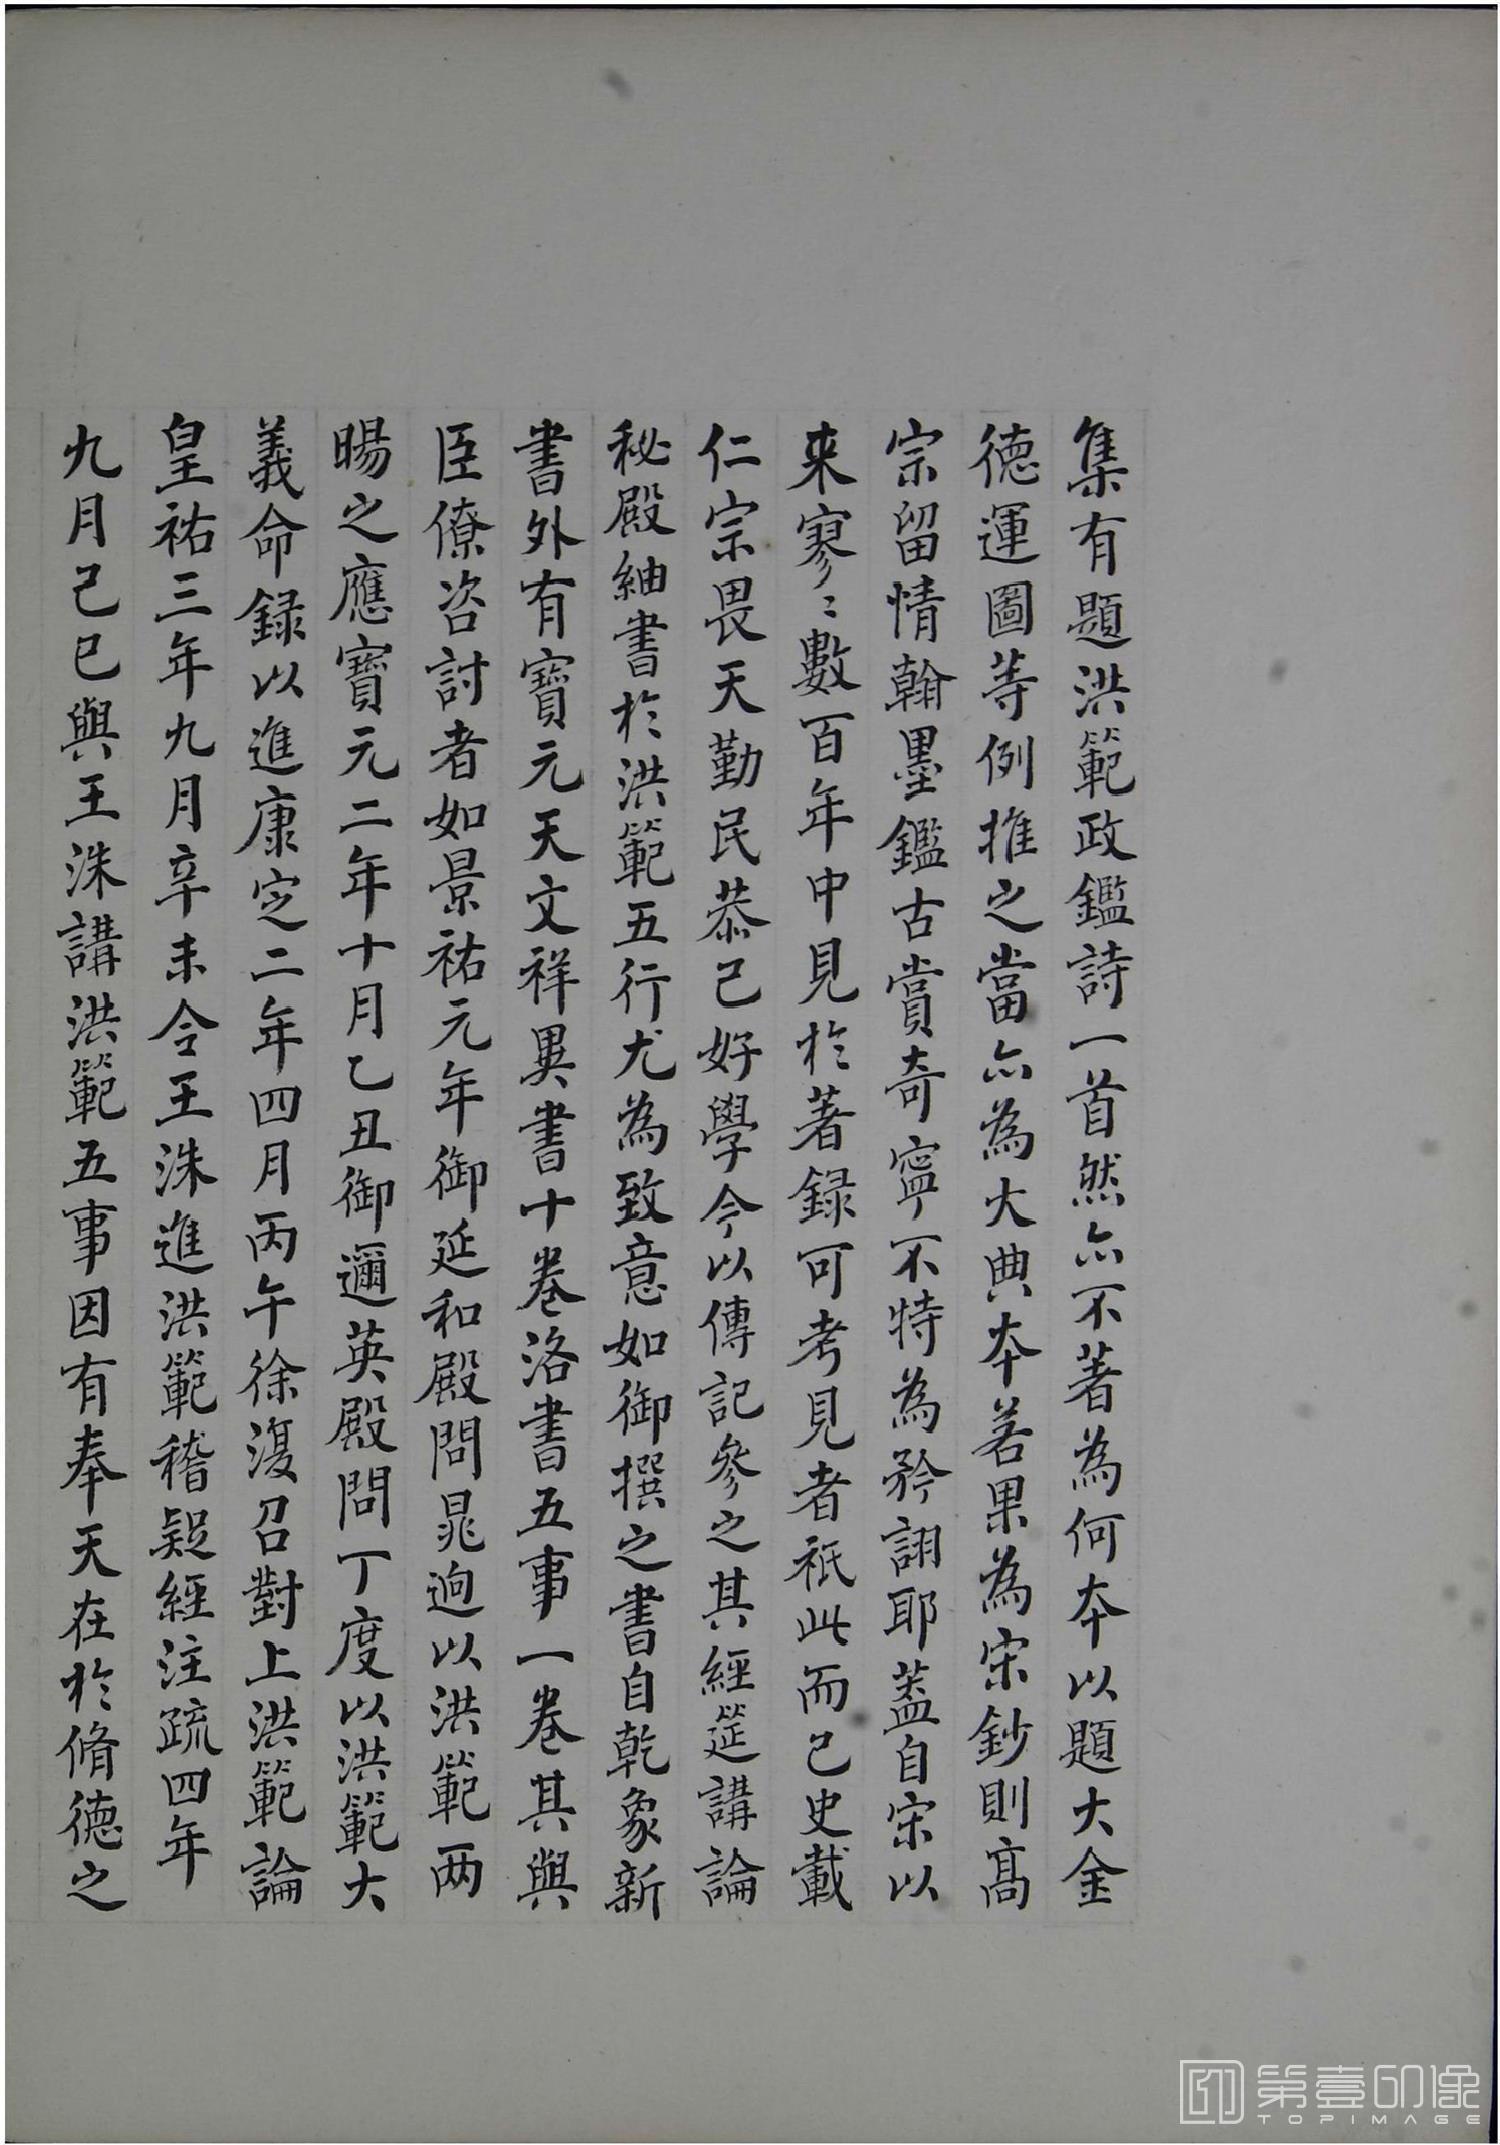 集有題洪範政鑑詩一首然亦不著為何本以題大金
德運圖等例推之當亦為大典本若果為宋鈔則高
宗留情翰墨鑑古賞奇寧不特為矜詡耶蓋自宋以
来寥〻數百年中見於著録可考見者祇此而已史載
仁宗畏天勤民恭己好學今以傳記參之其經筵講論
秘殿紬書於洪範五行尤為致意如御撰之書自乾象新
書外有寶元天文祥異書十卷洛書五事一卷其與
臣僚咨討者如景祐元年御延和殿問晁迥以洪範两
暘之應寶元二年十月乙丑御邇英殿問丁度以洪範大
義命録以進康定二年四月丙午徐復召對上洪範論
皇祐三年九月辛未令王洙進洪範稽疑經注疏四年
九月己巳與王洙講洪範五事因有奉天在於脩德之
第壹印像
TOPIMAGE